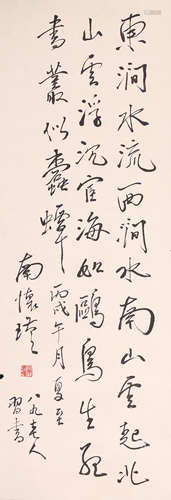 東澗水流西澗水南山雲起北
山雲浮沉宦海如鷗鳥生死
書叢似蠹蟫丙戌午月夏至
南懷瑾
八九老人
習書